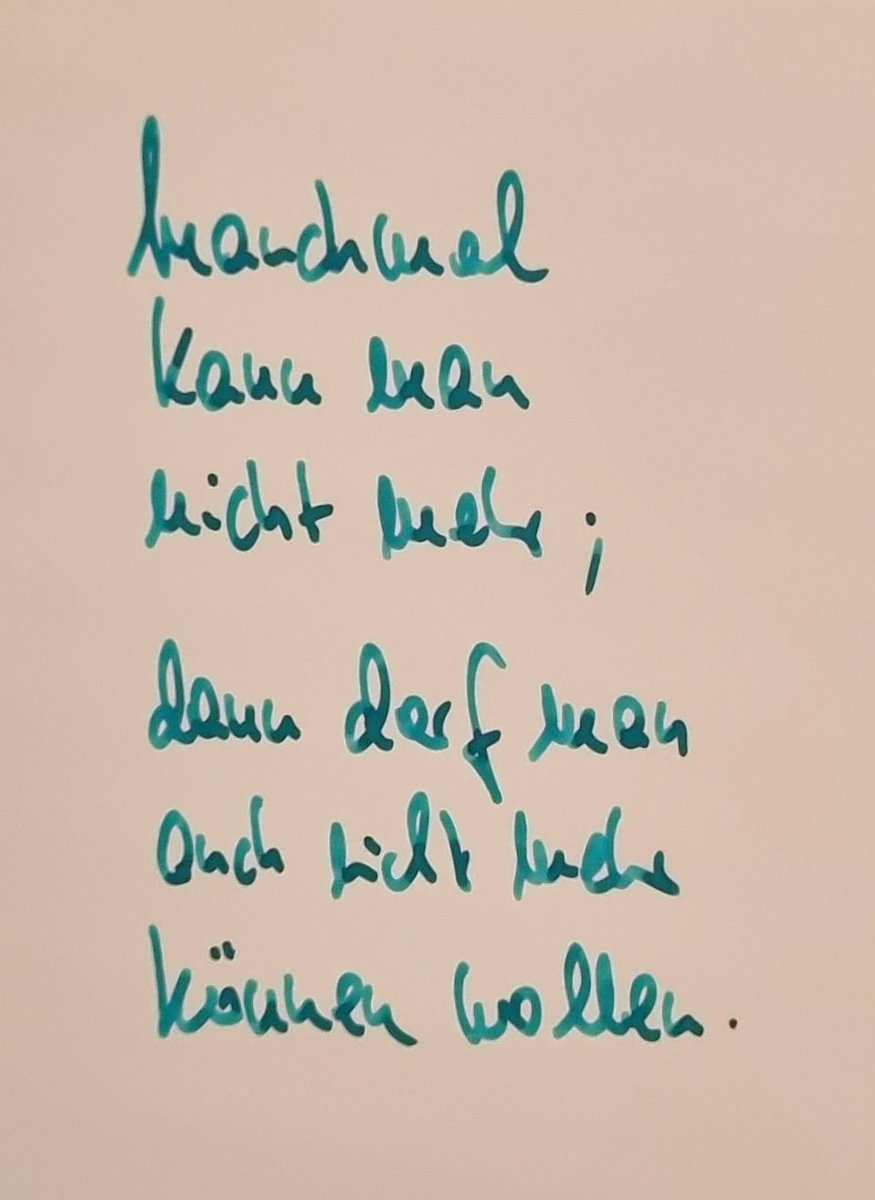 manchmal
kann man
nicht mehr;
dann darf man
auch nicht mehr
können wollen.